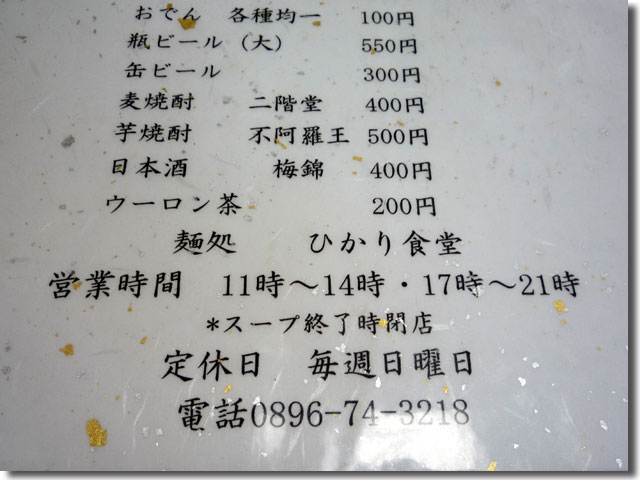 おでん 各種均一 100円
瓶ビール（大） 550円
缶ビール 300円
麦焼酎 二階堂 400円
芋焼酎 不阿羅王 500円
日本酒 梅錦 400円
ウーロン茶 200円
麺処 ひかり食堂
営業時間 11時～14時・17時～21時
*スープ終了時閉店
定休日 毎週日曜日
電話0896-74-3218